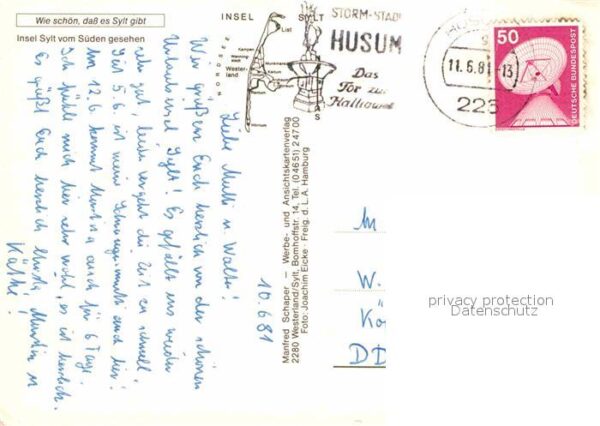 Wie schön, daß es Sylt gibt
Insel Sylt vom Süden gesehen
INSEL SYLT
List
Kampen
Westerland
NORDSEE
STORM-STADT
HUSUM
Das
Tor zu
11.6.81-13
223
50
DEUTSCHE BUNDESPOST
Manfred Schaper — Werbe- und Ansichtskartenverlag
2280 Westerland/Sylt, Bomhoffstr. 14, Tel. (04651) 24700
Foto: Joachim Eicke · Freig. d. L. A. Hamburg
10.6.81
Liebe Mutti u. Walter!
Wir grüßen Euch herzlich von der schönen
Urlaubsinsel Sylt! Es gefällt uns wieder
sehr gut, leider vergeht die Zeit zu schnell.
Seit 5.6. ist meine Schwiegermutti auch hier.
Am 12.6. kommt Martina auch für 6 Tage.
Ich fühle mich hier sehr wohl, es ist herrlich.
Es grüßt Euch herzlich Martin u.
Käthe!
M
W.
Kö
DD
privacy protection
Datenschutz